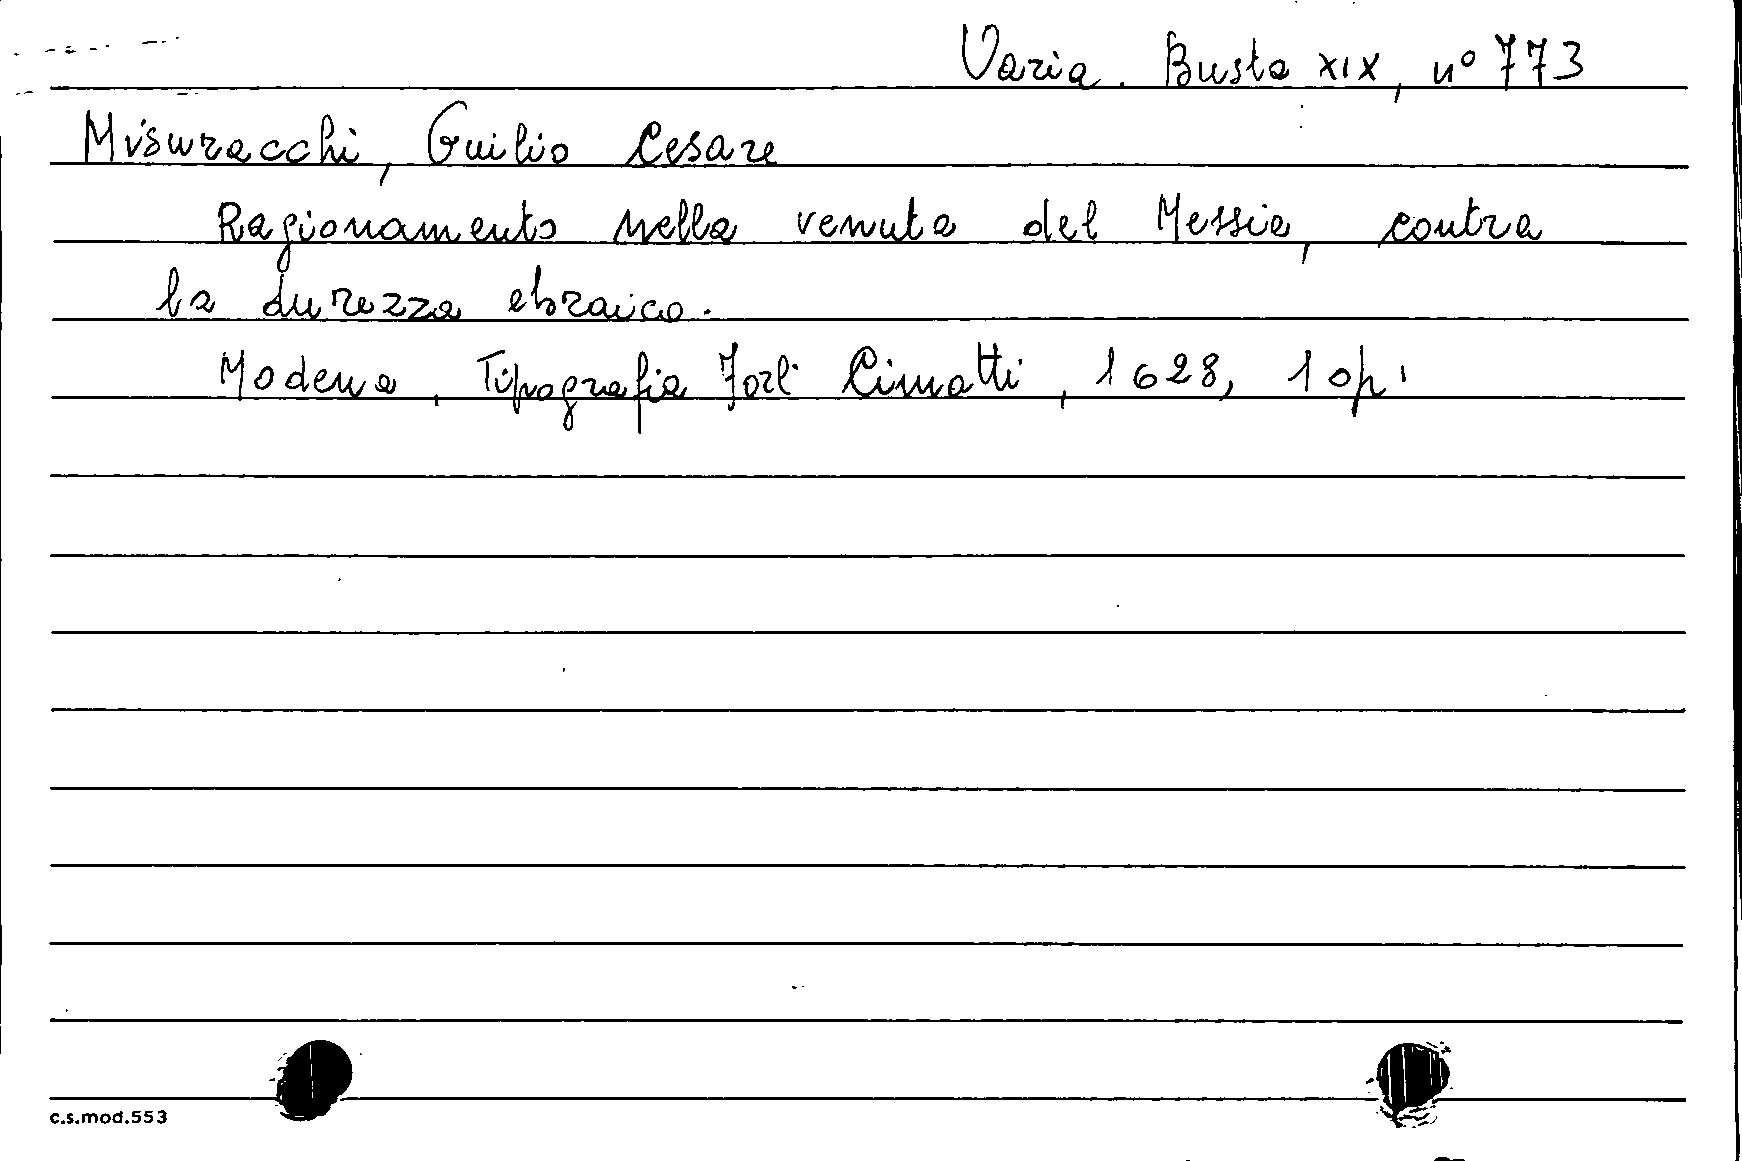 Varia. Busta XIX, n° 773
Misuracchi, Guilio Cesare
Ragionamento nella venuta del Messia, contra
la durezza ebraica.
Modena, Tipografia Forlì Cimatti, 1628, 1 op.
c.s.mod.553